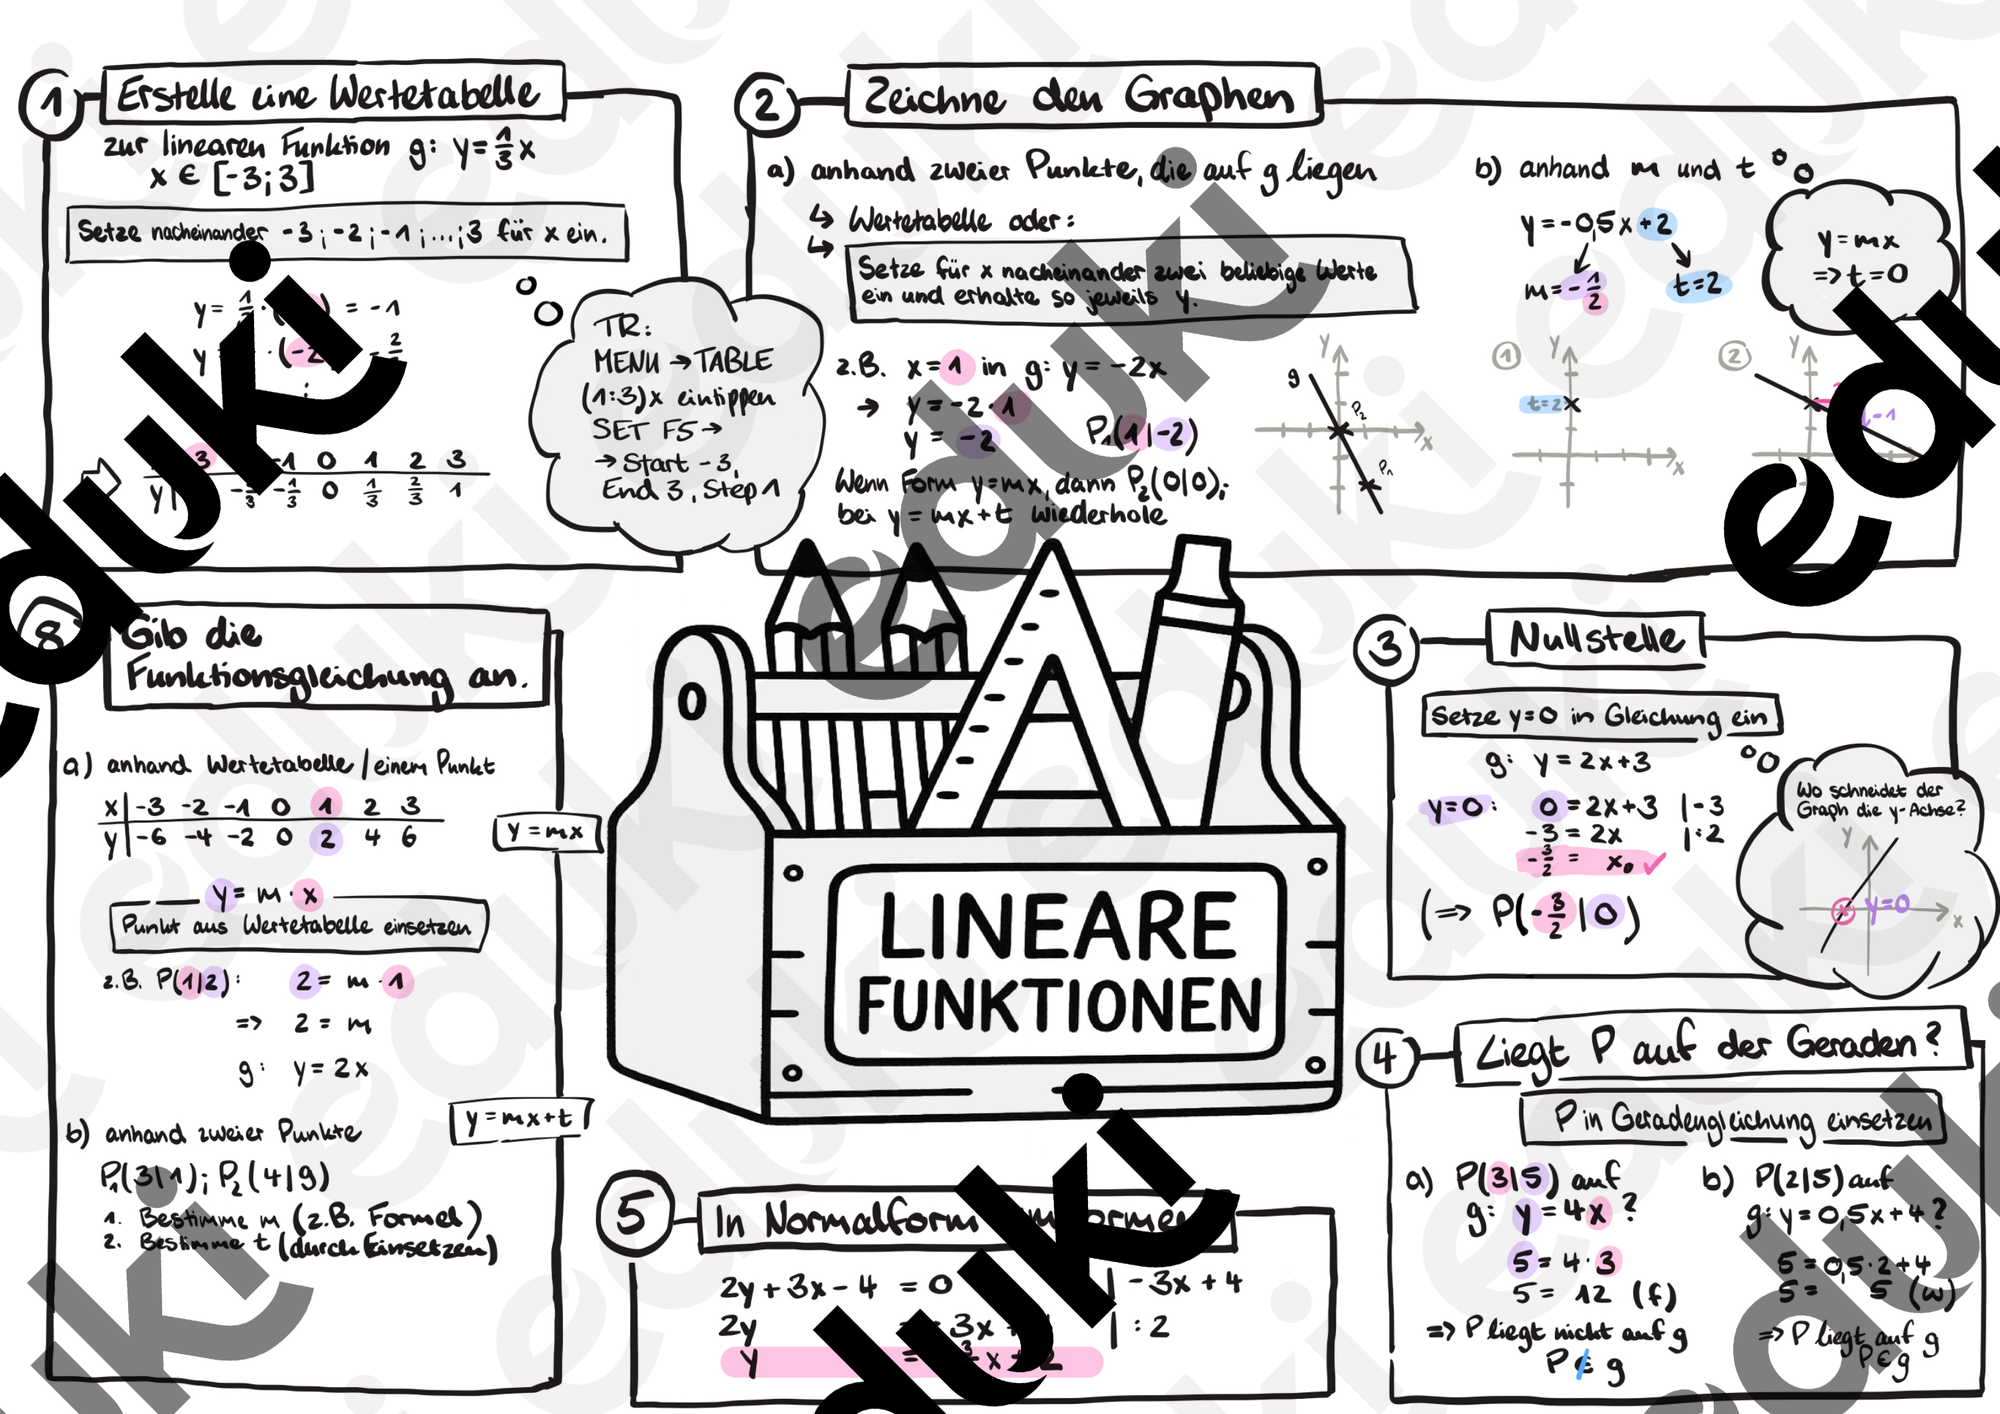 1 Erstelle eine Wertetabelle
zur linearen Funktion g: y = 1/3 x
x ∈ [-3;3]
Setze nacheinander -3 ; -2 ; -1 ; ... ; 3 für x ein.
y = = -1
y (-2
3 -1 0 1 2 3
y -1/3 0 1/3 2/3 1
TR:
MENU → TABLE
(1:3)x eintippen
SET F5 →
→ Start -3,
End 3, Step 1
2 Zeichne den Graphen
a) anhand zweier Punkte, die auf g liegen
↳ Wertetabelle oder:
↳ Setze für x nacheinander zwei beliebige Werte
ein und erhalte so jeweils y.
z.B. x = 1 in g: y = -2x
→ y = -2 · 1
y = -2 P₁(1|-2)
Wenn Form y=mx, dann P₂(0|0);
bei y = mx+t wiederhole
g y P₂ x P₁
b) anhand m und t
y = -0,5x + 2
m = -1/2 t = 2
y = mx
=> t = 0
1 y t=2 x
2 y -1
8 Gib die
Funktionsgleichung an.
a) anhand Wertetabelle / einem Punkt
x -3 -2 -1 0 1 2 3
y -6 -4 -2 0 2 4 6
y = mx
y = m · x
Punkt aus Wertetabelle einsetzen
z.B. P(1|2): 2 = m · 1
=> 2 = m
g: y = 2x
y = mx+t
b) anhand zweier Punkte
P₁(3|1); P₂(4|9)
1. Bestimme m (z.B. Formel)
2. Bestimme t (durch Einsetzen)
LINEARE
FUNKTIONEN
3 Nullstelle
Setze y=0 in Gleichung ein
g: y = 2x+3
y=0: 0 = 2x+3 | -3
-3 = 2x | :2
-3/2 = x₀ ✓
(=> P(-3/2|0)
Wo schneidet der
Graph die y-Achse?
y
y=0 x
4 Liegt P auf der Geraden?
P in Geradengleichung einsetzen
a) P(3|5) auf
g: y = 4x ?
5 = 4 · 3
5 = 12 (f)
=> P liegt nicht auf g
P ∉ g
b) P(2|5) auf
g: y = 0,5x+4 ?
5 = 0,5·2+4
5 = 5 (w)
=> P liegt auf g
P ∈ g
5 In Normalform
2y + 3x - 4 = 0 | -3x + 4
2y = 3x | :2
y = x
eduki
eduki
eduki
eduki
eduki
eduki